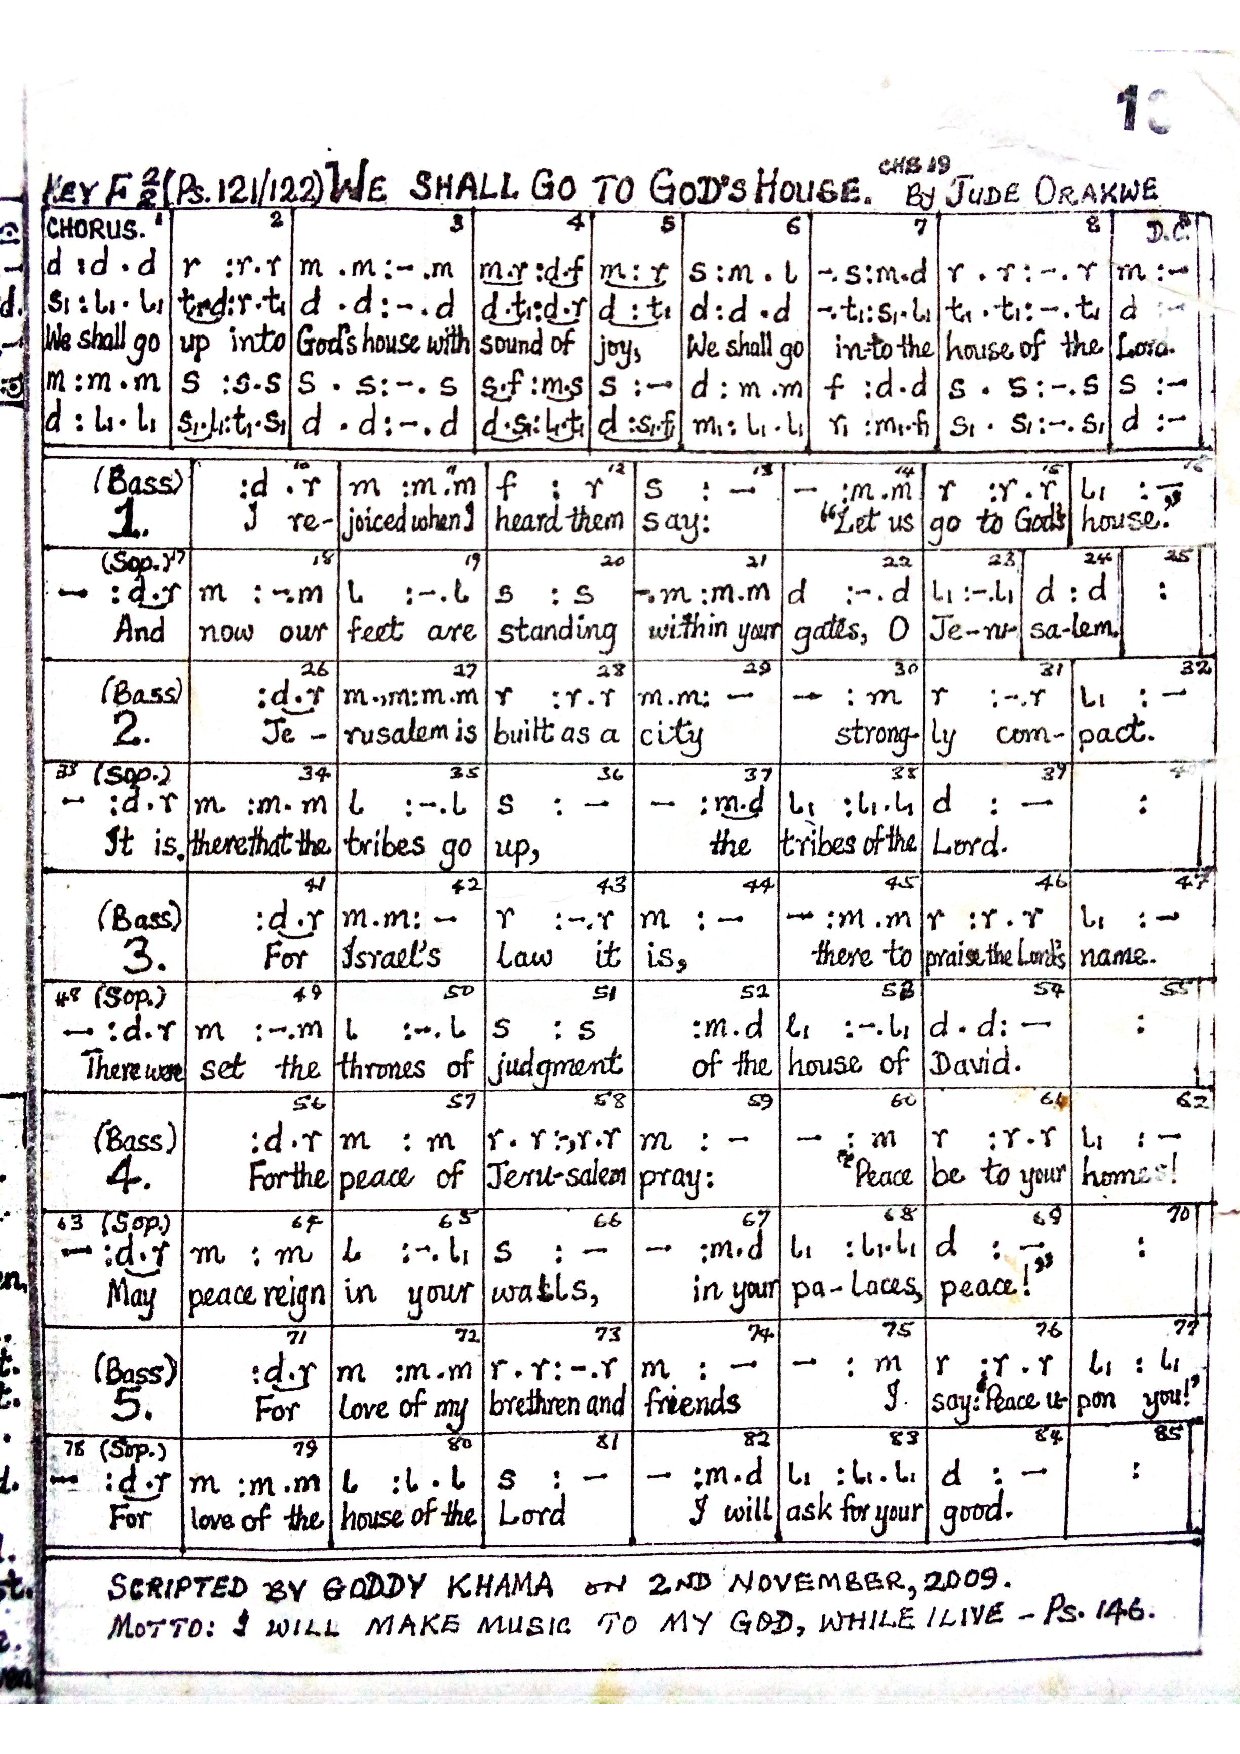 1
KEY F 2/2 (Ps. 121/122) WE SHALL GO TO GOD'S HOUSE. CHB 19 By JUDE ORAKWE
CHORUS. 1 2 3 4 5 6 7 8 D.C. 9
d :d . d | r :r.r | m .m:-.m | m.r:d.f | m : r | s :m . l | -.s:m.d | r . r:-.r | m :-
s₁:l₁.l₁ | t₁.d:r.t₁ | d .d:-.d | d.t₁:d.r | d : t₁ | d :d .d | -.t₁:s₁.l₁ | t₁.t₁:-.t₁ | d :-
We shall go up into God's house with sound of joy, We shall go in-to the house of the Lord.
m:m.m | s :s.s | s . s:-.s | s.f:m.s | s :- | d :m .m | f :d.d | s . s:-.s | s :-
d : l₁.l₁ | s₁.l₁:t₁.s₁ | d .d:-.d | d.s₁:l₁.t₁ | d :s₁.f₁ | m₁:l₁.l₁ | r₁ :m₁.f₁ | s₁ . s₁:-.s₁ | d :-
10 11 12 13 14 15 16
(Bass) :d .r | m :m.m | f : r | s :- | - :m.m | r :r.r | l₁ :-
1. I re- joiced when I heard them say: "Let us go to God's house."
(Sop.) 17 18 19 20 21 22 23 24 25
- :d.r | m :-.m | l :-.l | s : s | -.m:m.m | d :-.d | l₁:-.l₁ | d : d | :
And now our feet are standing within your gates, O Je-ru- sa-lem.
26 27 28 29 30 31 32
(Bass) :d.r | m.,m:m.m | r :r.r | m.m:- | - : m | r :-.r | l₁ :-
2. Je - rusalem is built as a city strong- ly com- pact.
33 (Sop.) 34 35 36 37 38 39 40
- :d.r | m :m.m | l :-.l | s :- | - :m.d | l₁ :l₁.l₁ | d :- | :
It is, there that the tribes go up, the tribes of the Lord.
41 42 43 44 45 46 47
(Bass) :d.r | m.m:- | r :-.r | m :- | - :m.m | r :r.r | l₁ :-
3. For Israel's Law it is, there to praise the Lord's name.
48 (Sop.) 49 50 51 52 53 54 55
- :d.r | m :-.m | l :-.l | s : s | :m.d | l₁ :-.l₁ | d.d:- | :
There were set the thrones of judgment of the house of David.
56 57 58 59 60 61 62
(Bass) :d.r | m : m | r.r:-,r.r | m :- | - : m | r :r.r | l₁ :-
4. For the peace of Jeru-salem pray: "Peace be to your homes!
63 (Sop.) 64 65 66 67 68 69 70
- :d.r | m : m | l :-.l₁ | s :- | - :m.d | l₁ :l₁.l₁ | d :- | :
May peace reign in your walls, in your pa-laces, peace!"
71 72 73 74 75 76 77
(Bass) :d.r | m :m.m | r.r:-.r | m :- | - : m | r :r.r | l₁ : l₁
5. For love of my brethren and friends I say: "Peace u- pon you!"
78 (Sop.) 79 80 81 82 83 84 85
- :d.r | m :m.m | l :l.l | s :- | - :m.d | l₁ :l₁.l₁ | d :- | :
For love of the house of the Lord I will ask for your good.
SCRIPTED BY GODDY KHAMA on 2ND NOVEMBER, 2009.
MOTTO: I WILL MAKE MUSIC TO MY GOD, WHILE I LIVE – Ps. 146.